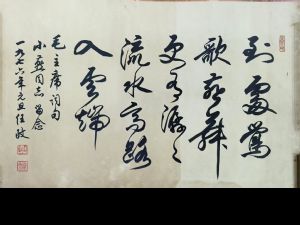 到处莺
歌燕舞
更有潺潺
流水高路
入云端
毛主席词句
小龚同志留念
一九七六年元旦任政